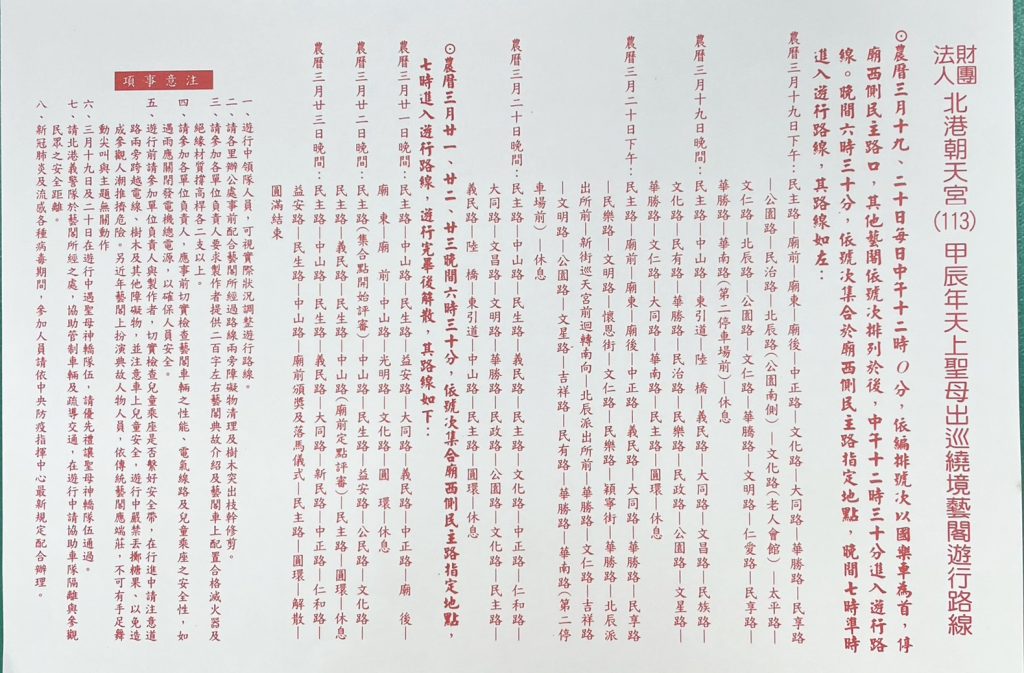 財團法人 北港朝天宮(113)甲辰年天上聖母出巡繞境藝閣遊行路線
⊙農曆三月十九、二十日每日中午十二時0分,依編排號次以國樂車為首,停
廟西側民主路口,其他藝閣依號次排列於後,中午十二時三十分進入遊行路
線。晚間六時三十分,依號次集合於廟西側民主路指定地點,晚間七時準時
進入遊行路線,其路線如左:
農曆三月十九日下午:民主路—廟前—廟東—廟後—中正路—文化路—大同路—華勝路—民享路
—公園路—民治路—北辰路(公園南側)—文化路(老人會館)—太平路—
文仁路—北辰路—公園路—文仁路—華勝路—文明路—仁愛路—民享路—
華勝路—華南路(第二停車場前)—休息
農曆三月十九日晚間:民主路—中山路—廟東—東引道—陸橋—義民路—大同路—文昌路—民族路—
文化路—民有路—華勝路—民治路—民樂路—民政路—公園路—文星路—
華勝路—文仁路—大同路—華南路—民主路—圓環—休息
農曆三月二十日下午:民主路—廟前—廟東—廟後—中正路—義民路—大同路—華勝路—民享路
—民樂路—文明路—懷恩街—文仁路—民樂路—穎寧街—華勝路—北辰派
出所前—新街巡天宮前迴轉南向—北辰派出所前—華勝路—文仁路—吉祥路
—文明路—公園路—文星路—吉祥路—民有路—華勝路—華南路(第二停
車場前)—休息
農曆三月二十日晚間:民主路—中山路—民生路—義民路—民主路—文化路—中正路—仁和路—
大同路—文昌路—文明路—華勝路—民政路—公園路—文化路—民主路—
義民路—陸橋—東引道—中山路—民主路—圓環—休息
⊙農曆三月廿一、廿二、廿三晚間六時三十分,依號次集合廟西側民主路指定地點,
七時進入遊行路線,遊行完畢後解散,其路線如下:
農曆三月廿一日晚間:民主路—中山路—民生路—益安路—大同路—義民路—中正路—廟後—
廟東—廟前—中山路—光明路—文化路—圓環—休息
農曆三月廿二日晚間:民主路(集合點開始評審)—中山路—民生路—益安路—公民路—文化路—
民主路—義民路—民生路—中山路(廟前定點評審)—民主路—圓環—休息
農曆三月廿三日晚間:民主路—中山路—民生路—義民路—大同路—新民路—中正路—仁和路—
益安路—民生路—中山路—廟前頒獎及落馬儀式—民主路—圓環—解散—
圓滿結束
注意事項
一、遊行中領隊人員,可視實際狀況調整遊行路線。
二、請各里辦公處事前配合藝閣所經過路線兩旁障礙物清理及樹木突出枝幹修剪。
三、請參加各單位負責人要求製作者提供二百字左右藝閣典故介紹及藝閣車上配置合格滅火器及
絕緣材質撐高桿各二支以上。
四、請參加各單位負責人,應事前切實檢查藝閣車輛之性能、電氣線路及兒童乘座之安全性,如
遇雨應關閉發電機總電源,以確保人員安全。
五、遊行前請參加單位負責人與製作者,切實檢查兒童乘座是否繫好安全帶,在行進中請注意道
路兩旁跨越電線、樹木及其他障礙物,並注意車上兒童安全,遊行中嚴禁丟擲糖果、以免造
成參觀人潮推擠危險。另近年藝閣上扮演典故人物人員,依傳統藝閣應端莊,不可有手足舞
動尖叫與主題無關動作
六、三月十九日及二十日在遊行中遇聖母神轎隊伍,請優先禮讓聖母神轎隊伍通過。
七、請北港義警隊於藝閣所經之處,協助管制車輛及疏導交通,在遊行中請協助車隊隔離與參觀
民眾之安全距離。
八、新冠肺炎及流感各種病毒期間,參加人員請依中央防疫指揮中心最新規定配合辦理。